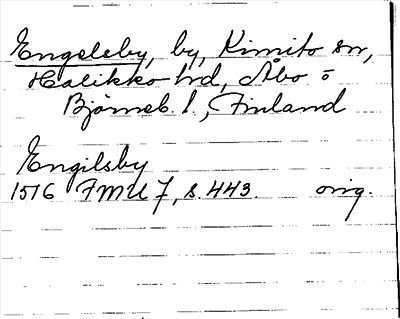 Engelsby, by, Kimito sn,
Halikko hd, Åbo o
Björneb. l., Finland
Engilsby
1516 FMU 7, s. 443. orig.